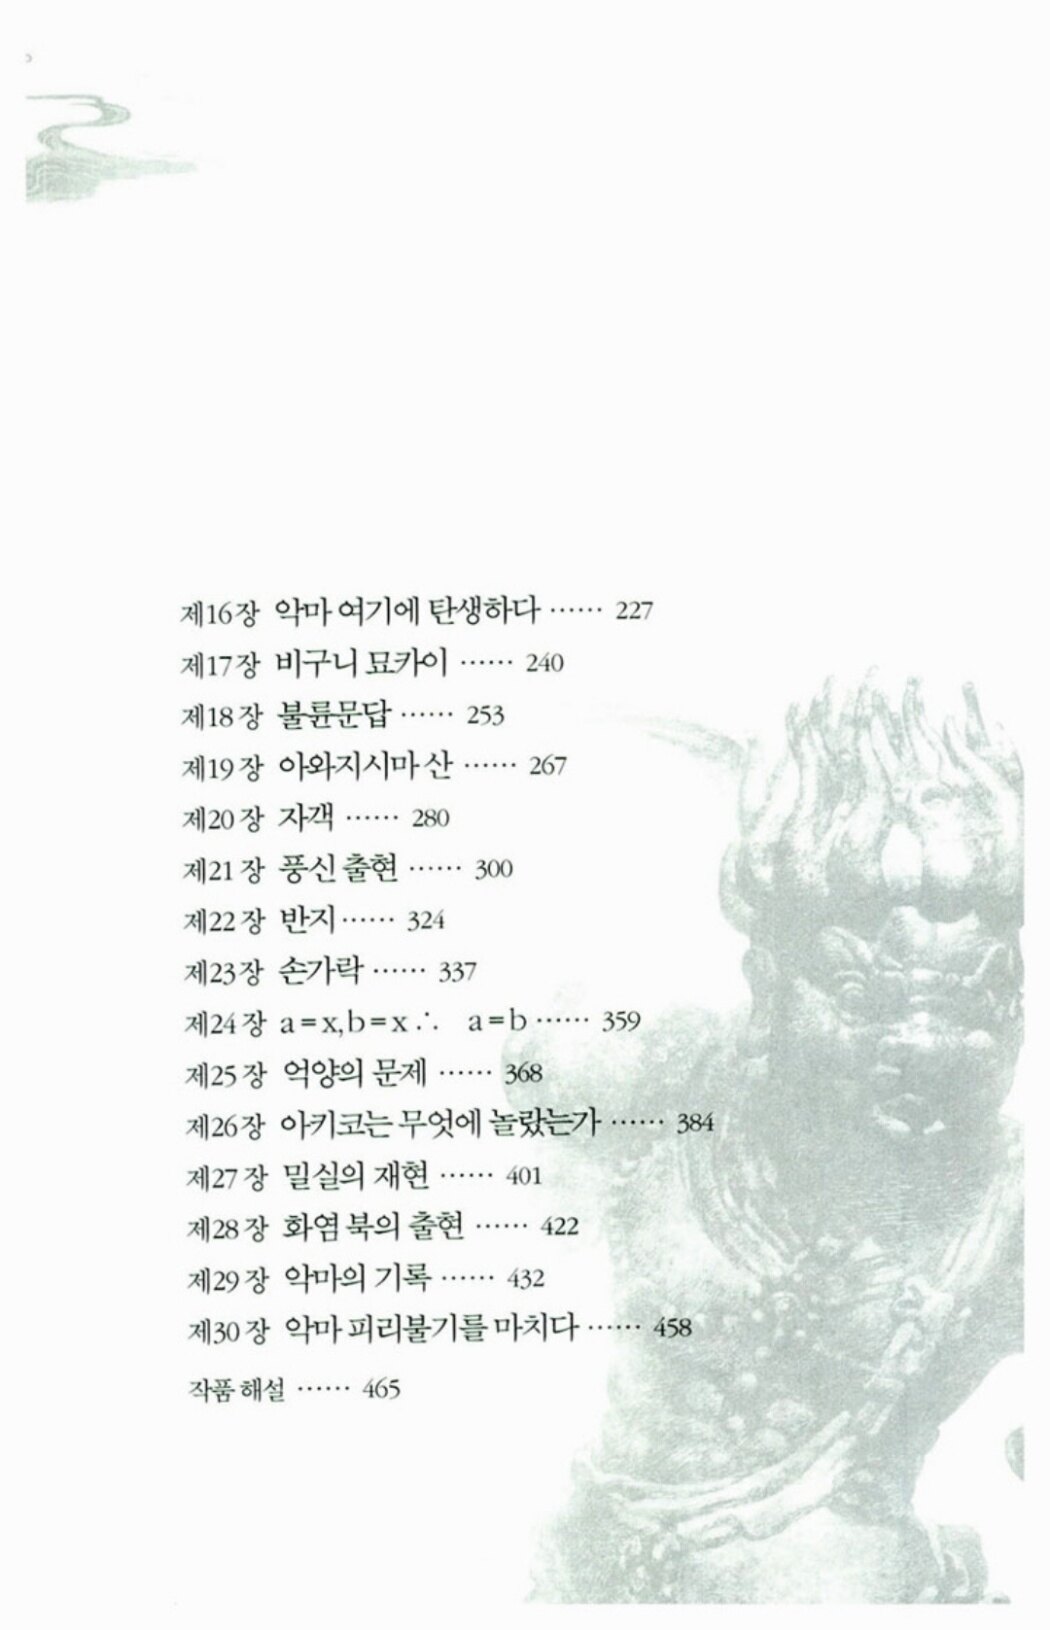 제16장 악마 여기에 탄생하다 …… 227
제17장 비구니 묘카이 …… 240
제18장 불륜문답 …… 253
제19장 아와지시마 산 …… 267
제20장 자객 …… 280
제21장 풍신 출현 …… 300
제22장 반지 …… 324
제23장 손가락 …… 337
제24장 a=x, b=x ∴ a=b …… 359
제25장 억양의 문제 …… 368
제26장 아키코는 무엇에 놀랐는가 …… 384
제27장 밀실의 재현 …… 401
제28장 화염 북의 출현 …… 422
제29장 악마의 기록 …… 432
제30장 악마 피리불기를 마치다 …… 458
작품 해설 …… 465